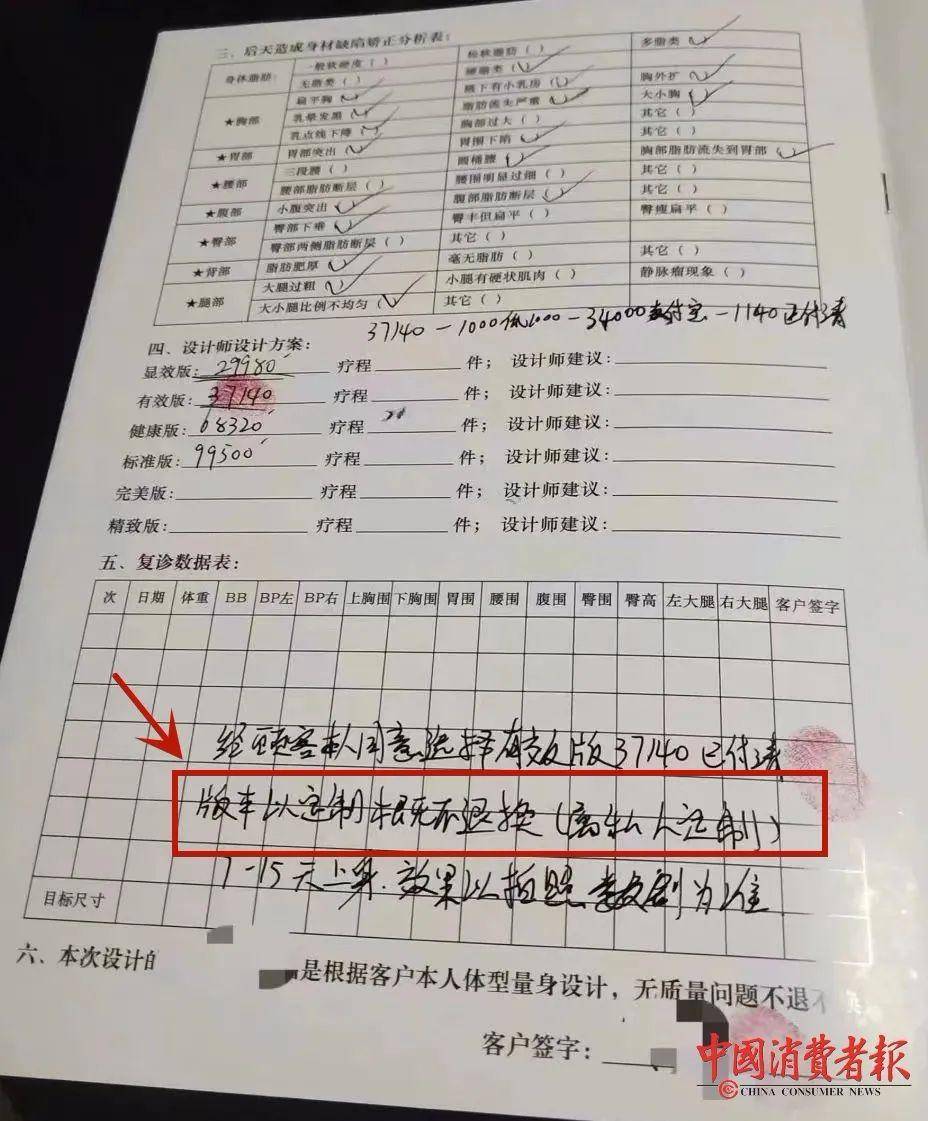 三、后天造成身材缺陷矫正分析表：
身体脂肪： 一般软硬度（ ） 松软脂肪（ ） 多脂类（✓）
无脂类（ ） 硬脂类（✓）
★胸部 扁平胸（✓） 腋下有小乳房（✓） 胸外扩（✓）
乳晕发黑（✓） 脂肪流失严重（✓） 大小胸（✓）
乳点线下降（✓） 胸部过大（ ） 其它（ ）
★胃部 胃部突出（✓） 胃围下陷（✓） 其它（ ）
★腰部 三段腰（ ） 圆桶腰（✓） 胸部脂肪流失到胃部（✓）
腰部脂肪断层（ ） 腰围明显过细（ ） 其它（ ）
★腹部 小腹突出（✓） 腹部脂肪断层（✓） 其它（ ）
★臀部 臀部下垂（✓） 臀丰但扁平（ ） 臀瘦扁平（ ）
臀部两侧脂肪断层（ ） 其它（ ）
★背部 脂肪肥厚（✓） 毫无脂肪（ ） 其它（ ）
★腿部 大腿过粗（✓） 小腿有硬状肌肉（ ） 静脉瘤现象（ ）
大小腿比例不均匀（✓） 其它（ ）
37140－1000 －34000支付宝－1140已付清
四、设计师设计方案：
显效版：29980 疗程 件； 设计师建议：
有效版：37140 疗程 件； 设计师建议：
健康版：68320 疗程 件； 设计师建议：
标准版：99500 疗程 件； 设计师建议：
完美版： 疗程 件； 设计师建议：
精致版： 疗程 件； 设计师建议：
五、复诊数据表：
次 日期 体重 BB BP左 BP右 上胸围 下胸围 胃围 腰围 腹围 臀围 臀高 左大腿 右大腿 客户签字
经顾客本人同意选择有效版37140已付清
版本以定制概不退换（属私人定制）
7-15天上身.效果以拍照数据为准
目标尺寸
六、本次设计的 是根据客户本人体型量身设计，无质量问题不退不
客户签字：
中國消費者報
CHINA CONSUMER NEWS